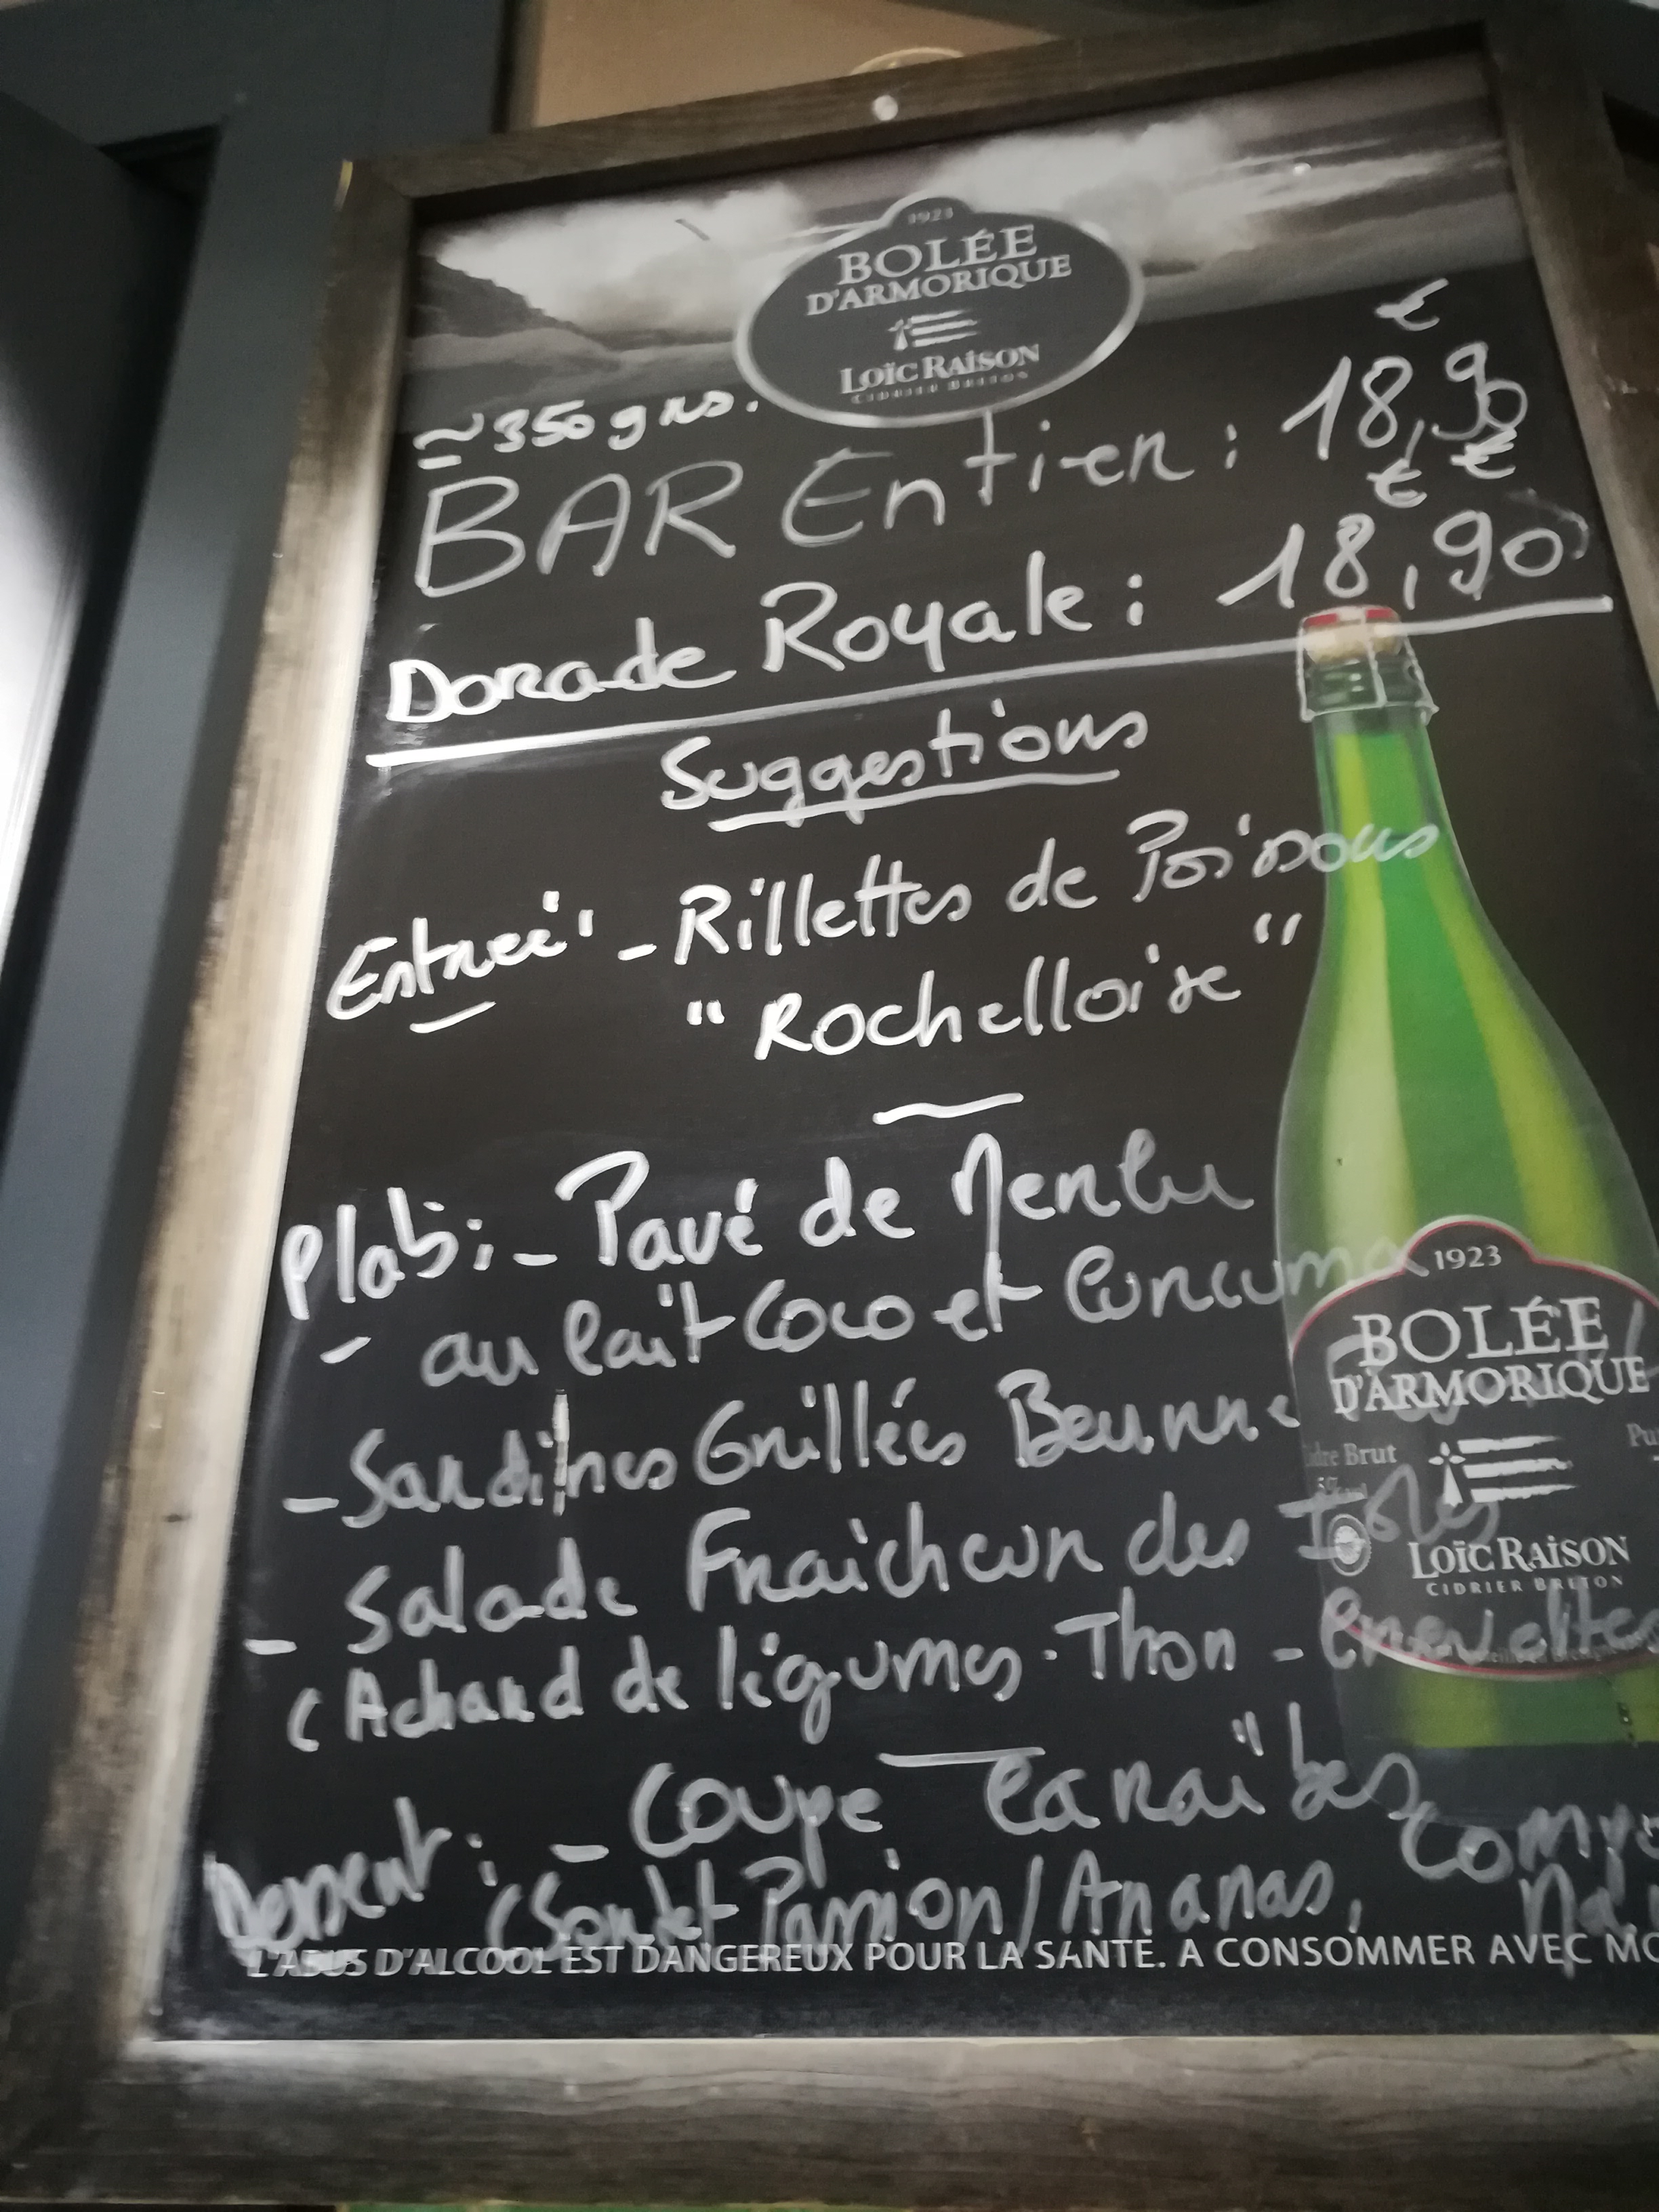 1923
BOLÉE
D'ARMORIQUE
LOÏC RAISON
CIDRIER BRETON
≃ 350 grs.
€
BAR Entier : 18,90
€ €
Dorade Royale : 18,90
Suggestions
Entrée' - Rillettes de Poissons
"Rochelloise"
Plats : - Pavé de Merlu
au lait Coco et Curcuma
- Sardines Grillées Beurre
- Salade Fraicheur des Isles
(Achard de légumes · Thon - Crevettes
Dessert : - Coupe Caraïbes
(Sorbet Passion/Ananas,
L'ABUS D'ALCOOL EST DANGEREUX POUR LA SANTÉ. A CONSOMMER AVEC MO
1923
BOLÉE
D'ARMORIQUE
Cidre Brut
LOÏC RAISON
CIDRIER BRETON